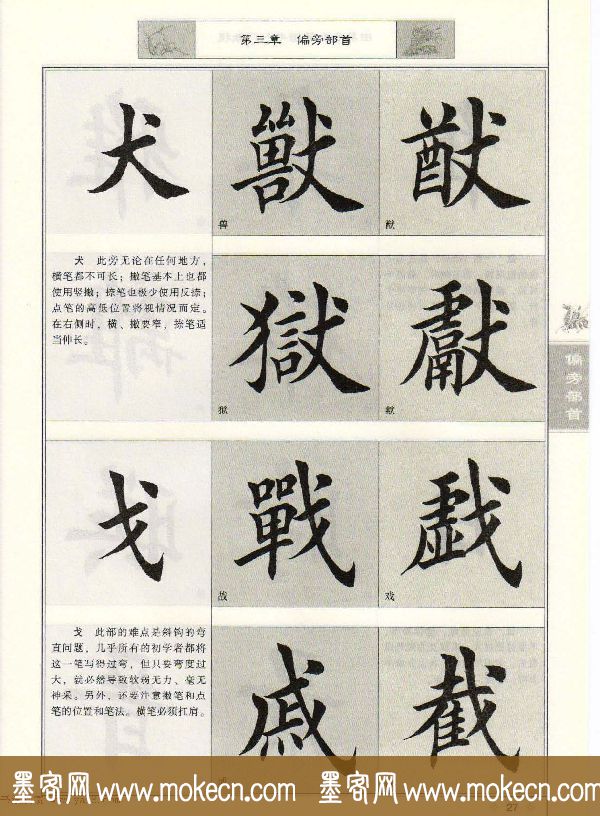 第三章 偏旁部首
犬 獸 猷
兽 猷
犬 此旁无论在任何地方，
横笔都不可长；撇笔基本上也都
使用竖撇；捺笔也极少使用反捺；
点笔的高低位置将视情况而定。
在右侧时，横、撇要窄，捺笔适
当伸长。
獄 獻
狱 献
偏旁部首
戈 戰 戲
战 戏
戈 此部的难点是斜钩的弯
直问题，几乎所有的初学者都将
这一笔写得过弯，但只要弯度过
大，就必然导致软弱无力、毫无
神采。另外，还要注意撇笔和点
笔的位置和笔法。横笔必须扛肩。
戚 截
墨客网 www.mokecn.com 墨客网 www.mokecn.com
27